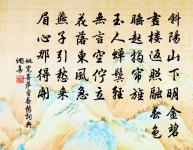 斜陽山下明金碧
畫樓返照融春色
睡起揭簾旌
玉人蟬鬢輕
無言空佇立
花落東風急
燕子引愁來
眉心那得開
姚寬菩薩蠻春愁詞典